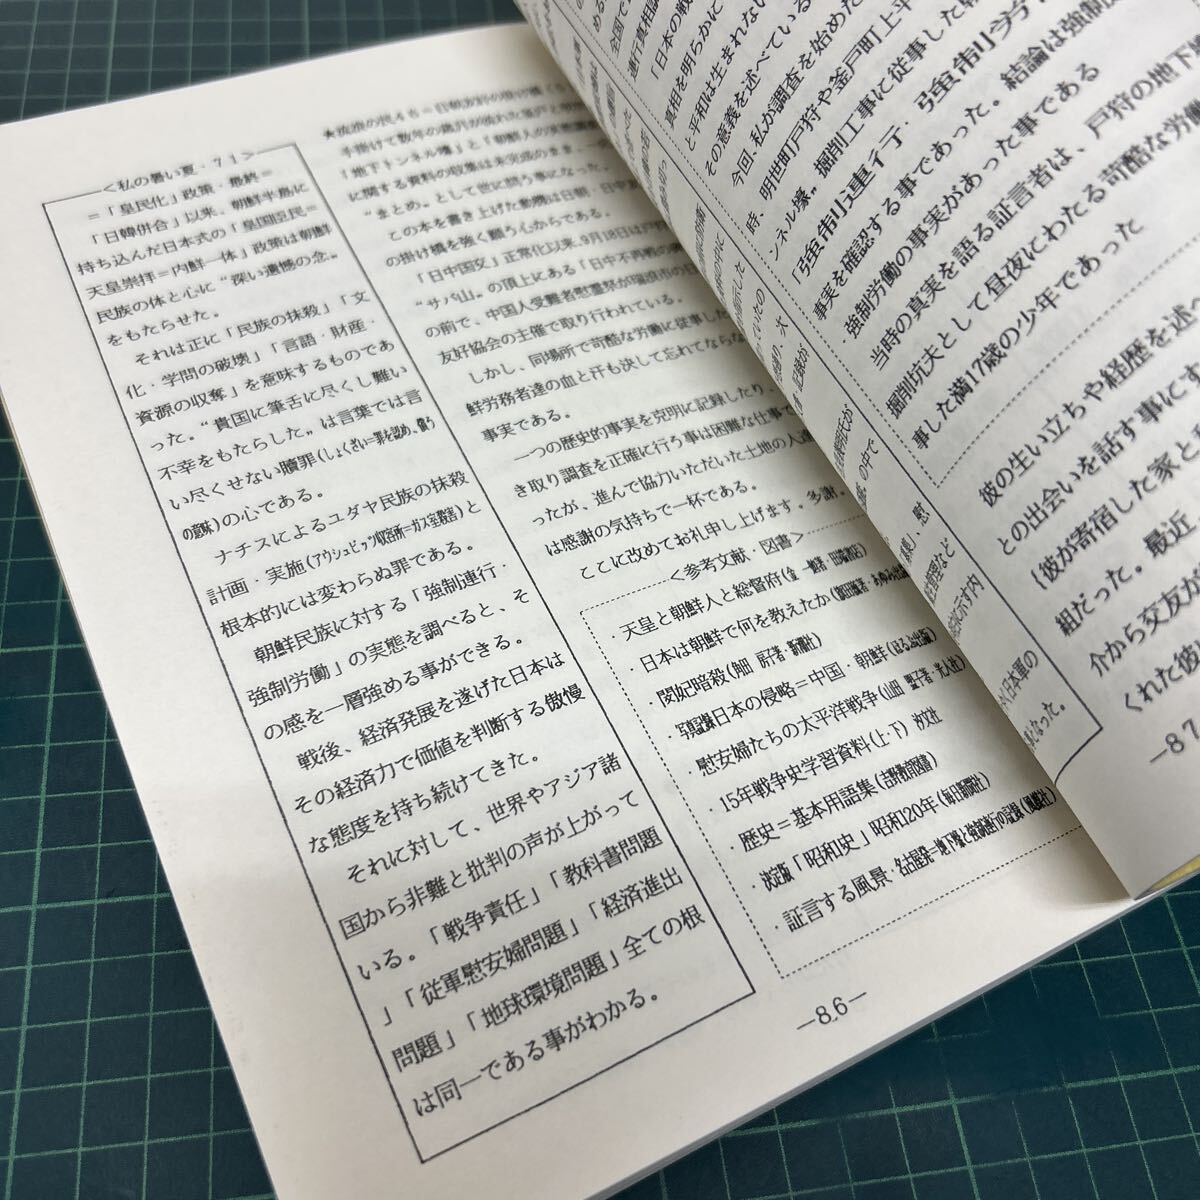 ―<私の暑い夏・71>―
=「皇民化」政策・最終=
「日韓併合」以来、朝鮮半島に
持ち込んだ日本式の「皇国臣民=
天皇崇拝=内鮮一体」政策は朝鮮
民族の体と心に“深い遺憾の念〟
をもたらせた。
それは正に「民族の抹殺」「文
化・学問の破壊」「言語・財産・
資源の収奪」を意味するものであ
った。“貴国に筆舌に尽くし難い
不幸をもたらした〟は言葉では言
い尽くせない贖罪(しょくざい=罪を認め、償う
の意味)の心である。
ナチスによるユダヤ民族の抹殺
計画・実施(アウシュビッツ収容所―ガス室殺害)と
根本的には変わらぬ罪である。
朝鮮民族に対する「強制連行・
強制労働」の実態を調べると、そ
の感を一層強める事ができる。
戦後、経済発展を遂げた日本は
その経済力で価値を判断する傲慢
な態度を持ち続けてきた。
それに対して、世界やアジア諸
国から非難と批判の声が上がって
いる。「戦争責任」「教科書問題
」「従軍慰安婦問題」「経済進出
問題」「地球環境問題」全ての根
は同一である事がわかる。
手掛けて数年の歳月が流れた
「地下トンネル壕」と「朝鮮人の
に関する資料の収集は未完成のまま、
“まとめ〟として世に問う事になった。
この本を書き上げた動機は日朝・日中
の掛け橋を強く願う心からである。
「日中国交」正常化以来、9月18日は
“サバ山〟の頂上にある「日中不再戦の
の前で、中国人受難者慰霊祭が瑞浪市の日
友好協会の主催で取り行われている。
しかし、同場所で苛酷な労働に従事した
鮮労務者達の血と汗も決して忘れてならな
事実である。
一つの歴史的事実を克明に記録したり、
き取り調査を正確に行う事は困難な仕事で
ったが、進んで協力いただいた土地の人達
は感謝の気持ちで一杯である。
ここに改めてお礼申し上げます。多謝。
<参考文献・図書>
・天皇と朝鮮人と総督府
・日本は朝鮮で何を教えたか
・閔妃暗殺(角田 房子著・新潮社)
・写真記録日本の侵略=中国・朝鮮(ほるぷ出版)
・慰安婦たちの太平洋戦争(山田 盟子著・光人社)
・15年戦争史学習資料(上・下)
・歴史=基本用語集(吉野教育図書)
・決定版「昭和史」昭和20年(毎日新聞社)
・証言する風景・名古屋発=地下壕と強制連行の記録(風媒社)
―86―
全国で
「日本の戦
真相を明らかに
と平和は生まれない
その意義を述べている
今回、私が調査を始めた
時、明世町戸狩や釜戸町上平
ンネル壕〟掘削工事に従事した朝
「強制連行・強制労
事実を確認する事であった。結論は強制
・強制労働の事実があった事である
当時の真実を語る証言者は、戸狩の地下
掘削坑夫として昼夜にわたる苛酷な労働
事した満17歳の少年であった
彼の生い立ちや経歴を述
との出会いを話す事にす
{彼が寄宿した家と
組だった。最近
介から交友が
くれた彼
―87